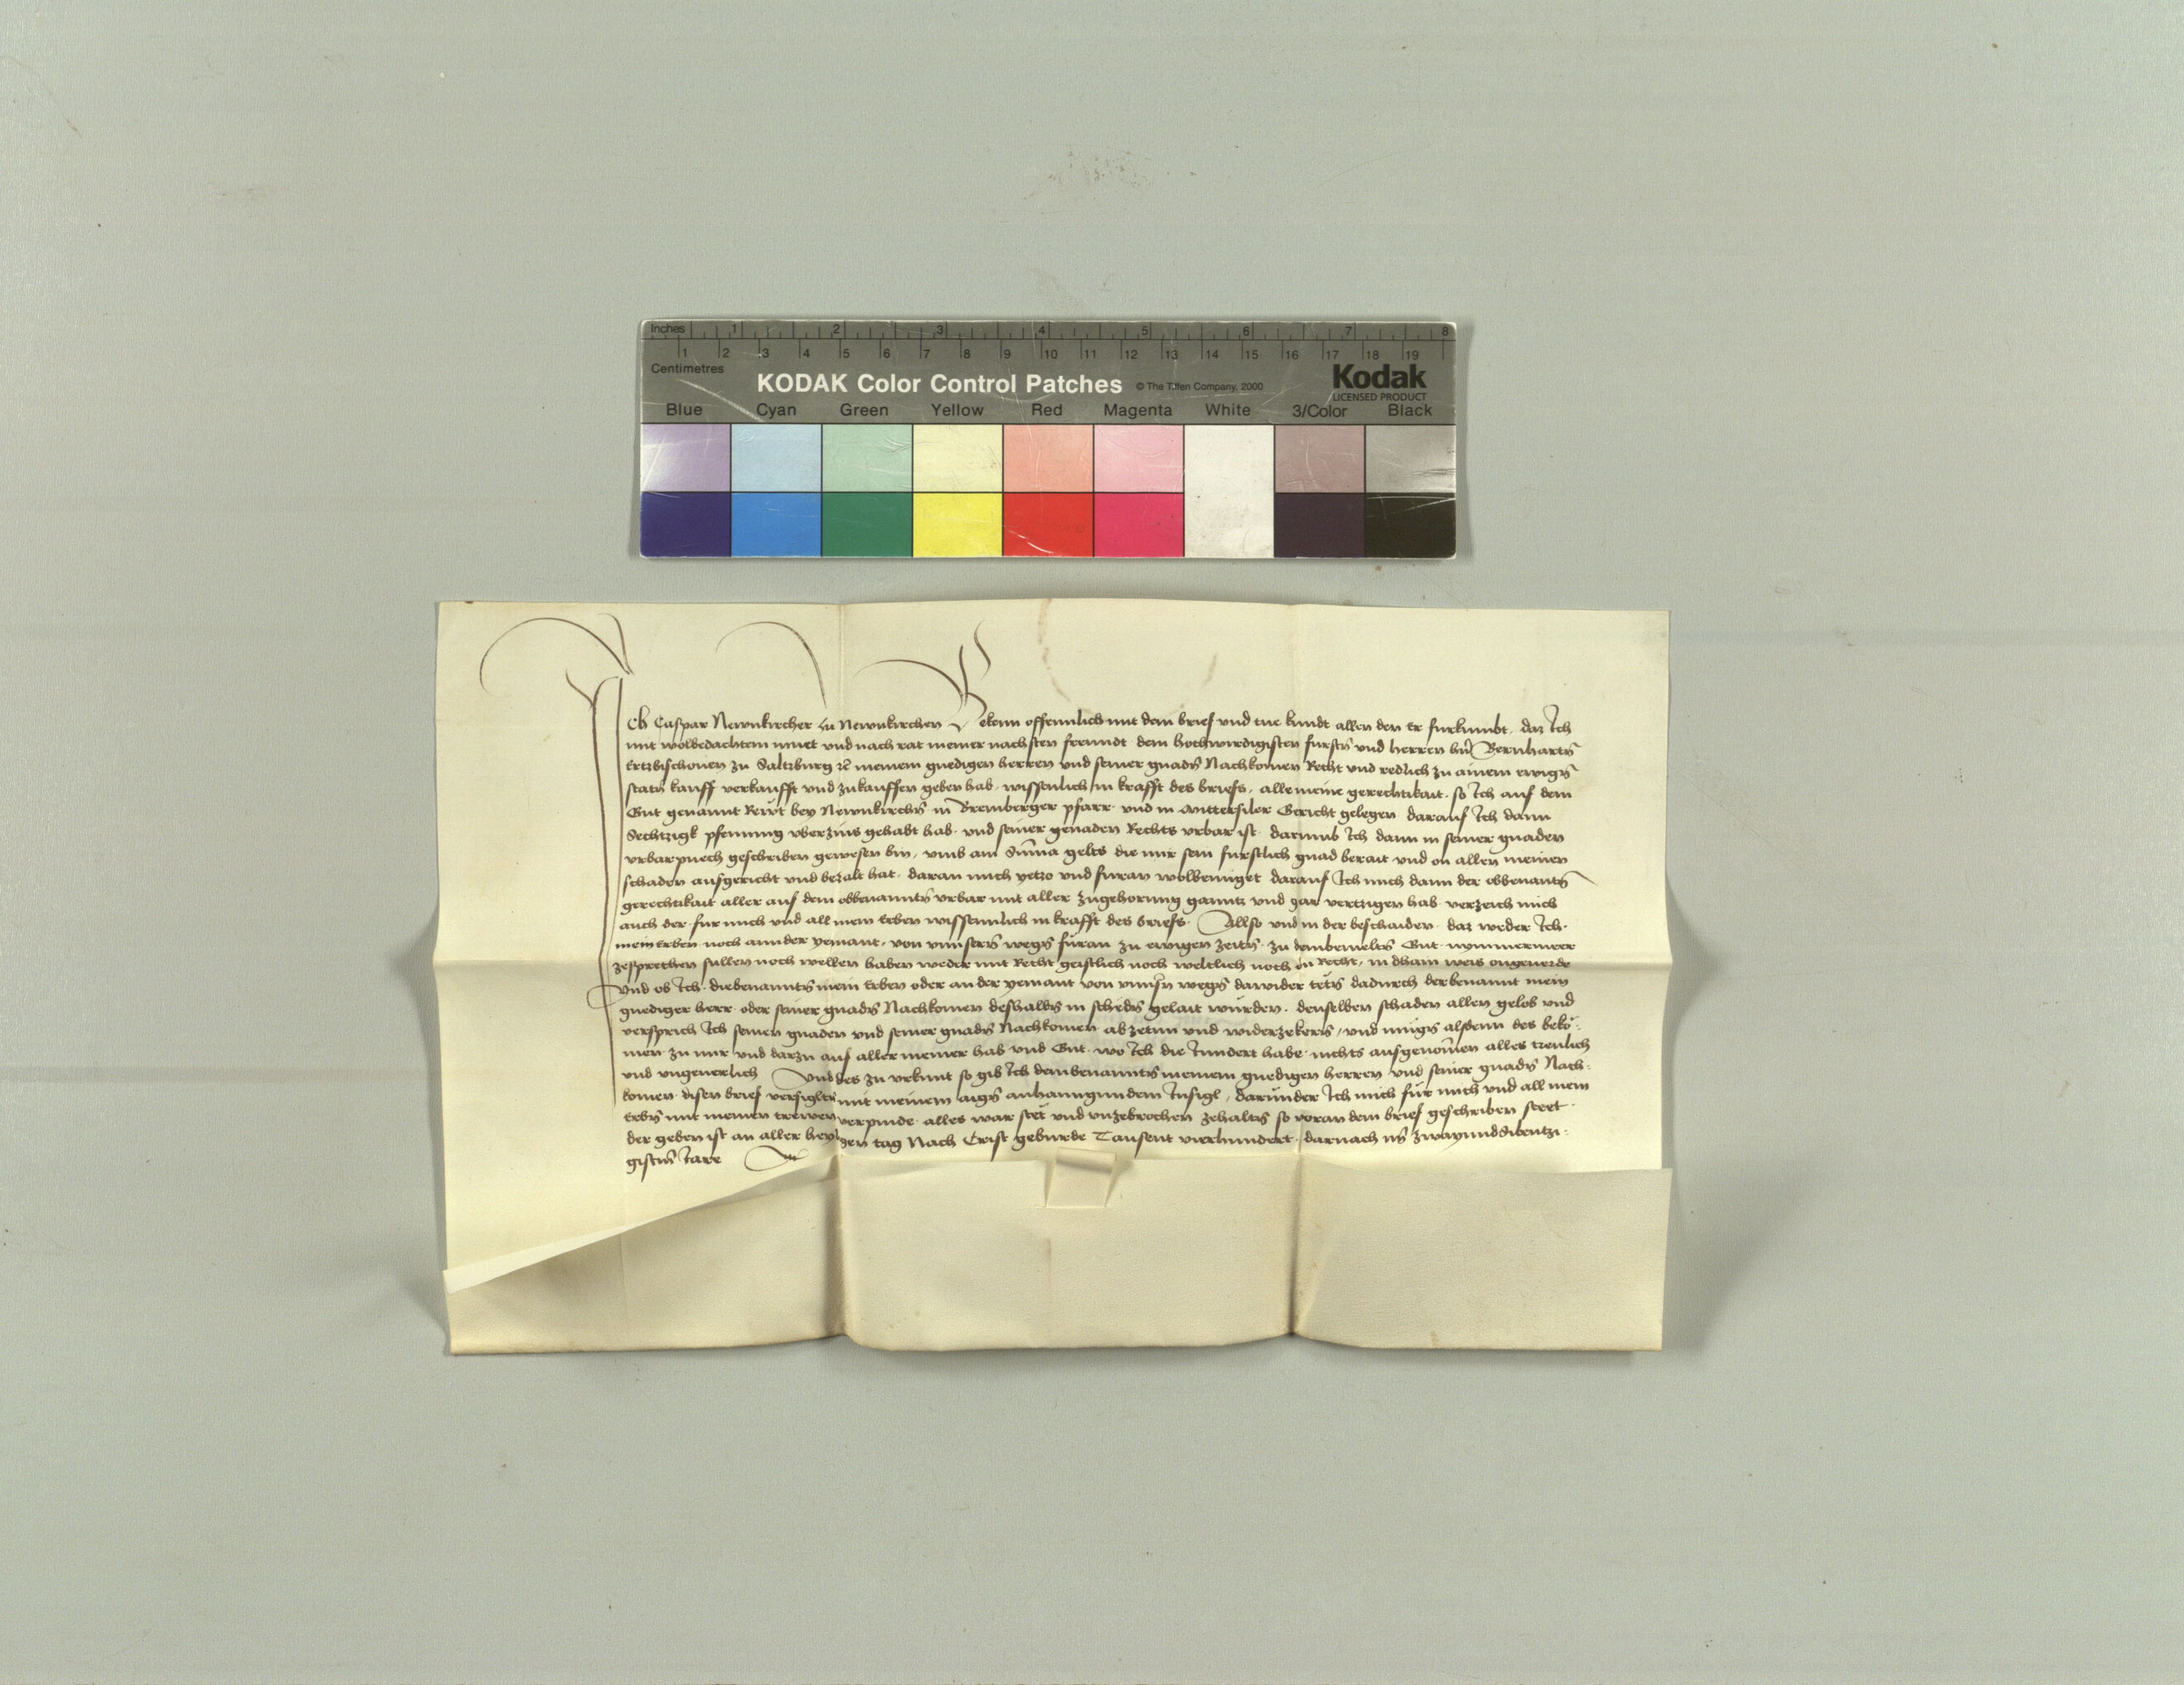 Inches 1 2 3 4 5 6 7 8
1 2 3 4 5 6 7 8 9 10 11 12 13 14 15 16 17 18 19
Centimetres
KODAK Color Control Patches © The Tiffen Company, 2000 Kodak
LICENSED PRODUCT
Blue Cyan Green Yellow Red Magenta White 3/Color Black
Ich Caspar Newnkircher zu Newnkirchen Bekenn offennlich mit dem brief und tue kundt allen den Er furkumbt, daz Ich
mit wolbedachtem muet und nach rat meiner nachsten freundt dem hochwirdigisten fursten und herren hern Bernharten
Ertzbischouen zu Saltzburg meinem gnedigen herren und seiner gnaden Nachkomen Recht und redlich zu ainem ewigen
staten kauff verkaufft und zukauffen geben hab, wissenlich in krafft des briefs, alle meine gerechtikait, so Ich auf dem
Gut genannt Rewt bey Newnkirchen in Bremberger pfarr und in Mittersiler Gericht gelegen darauf Ich dann
Sechtzigk pfenning vberzins gehabt hab und seiner genaden Rechts vrbar ist darumb Ich dann in seiner gnaden
vrbarpuech geschriben gewesen bin, vmb ain Summa gelts die mir sein furstlich gnad berait und on allen meinen
schaden ausgericht und bezalt hat, daran mich yetzo und furan wolbenuget darauf Ich mich dann der obbenanten
gerechtikait aller auf dem obbenannten vrbar mit aller zugehorung ganntz und gar vertzigen hab verzeich mich
auch der fur mich und all mein Erben wissenntlich in krafft des briefs Allso und in der beschaiden daz weder Ich
mein Erben noch annder yemant, von vnnsern wegen furan zu ewigen zeiten zu dembemelten Gut nymmermeer
zesprechen sullen noch wellen haben weder mit Recht geistlich noch weltlich noch on Recht, in dhain weis ongeuerde
Und ob Ich diebenannten mein Erben oder ander yemant von vnnsern wegen dawider teten dadurch derbenannt mein
gnediger herr oder seiner gnaden Nachkomen deshalben in scheden gelait wurden, denselben schaden allen gelob und
versprich Ich seinen gnaden und seiner gnaden Nachkomen abzetun und widerzekeren, und mugen alsdenn des beko:
men zu mir und darzu auf aller meiner hab und Gut wo Ich die Inndert habe nichts ausgenomen alles treulich
und vngeuerlich Und des zu vrkunt so gib Ich dembenannten meinem gnedigen herren und seiner gnaden Nach:
komen disen brief versiglten mit meinem aigen anhanngundem Insigl, darunder Ich mich fur mich und all mein
Erben mit meinen trewen verpinde alles war stet und vnzebrochen zehalten so voran dem brief geschriben steet
der geben ist an aller heyligen tag Nach Crist geburde Tausent vierhundert, darnach im zwayundsibentzi:
gisten Iare